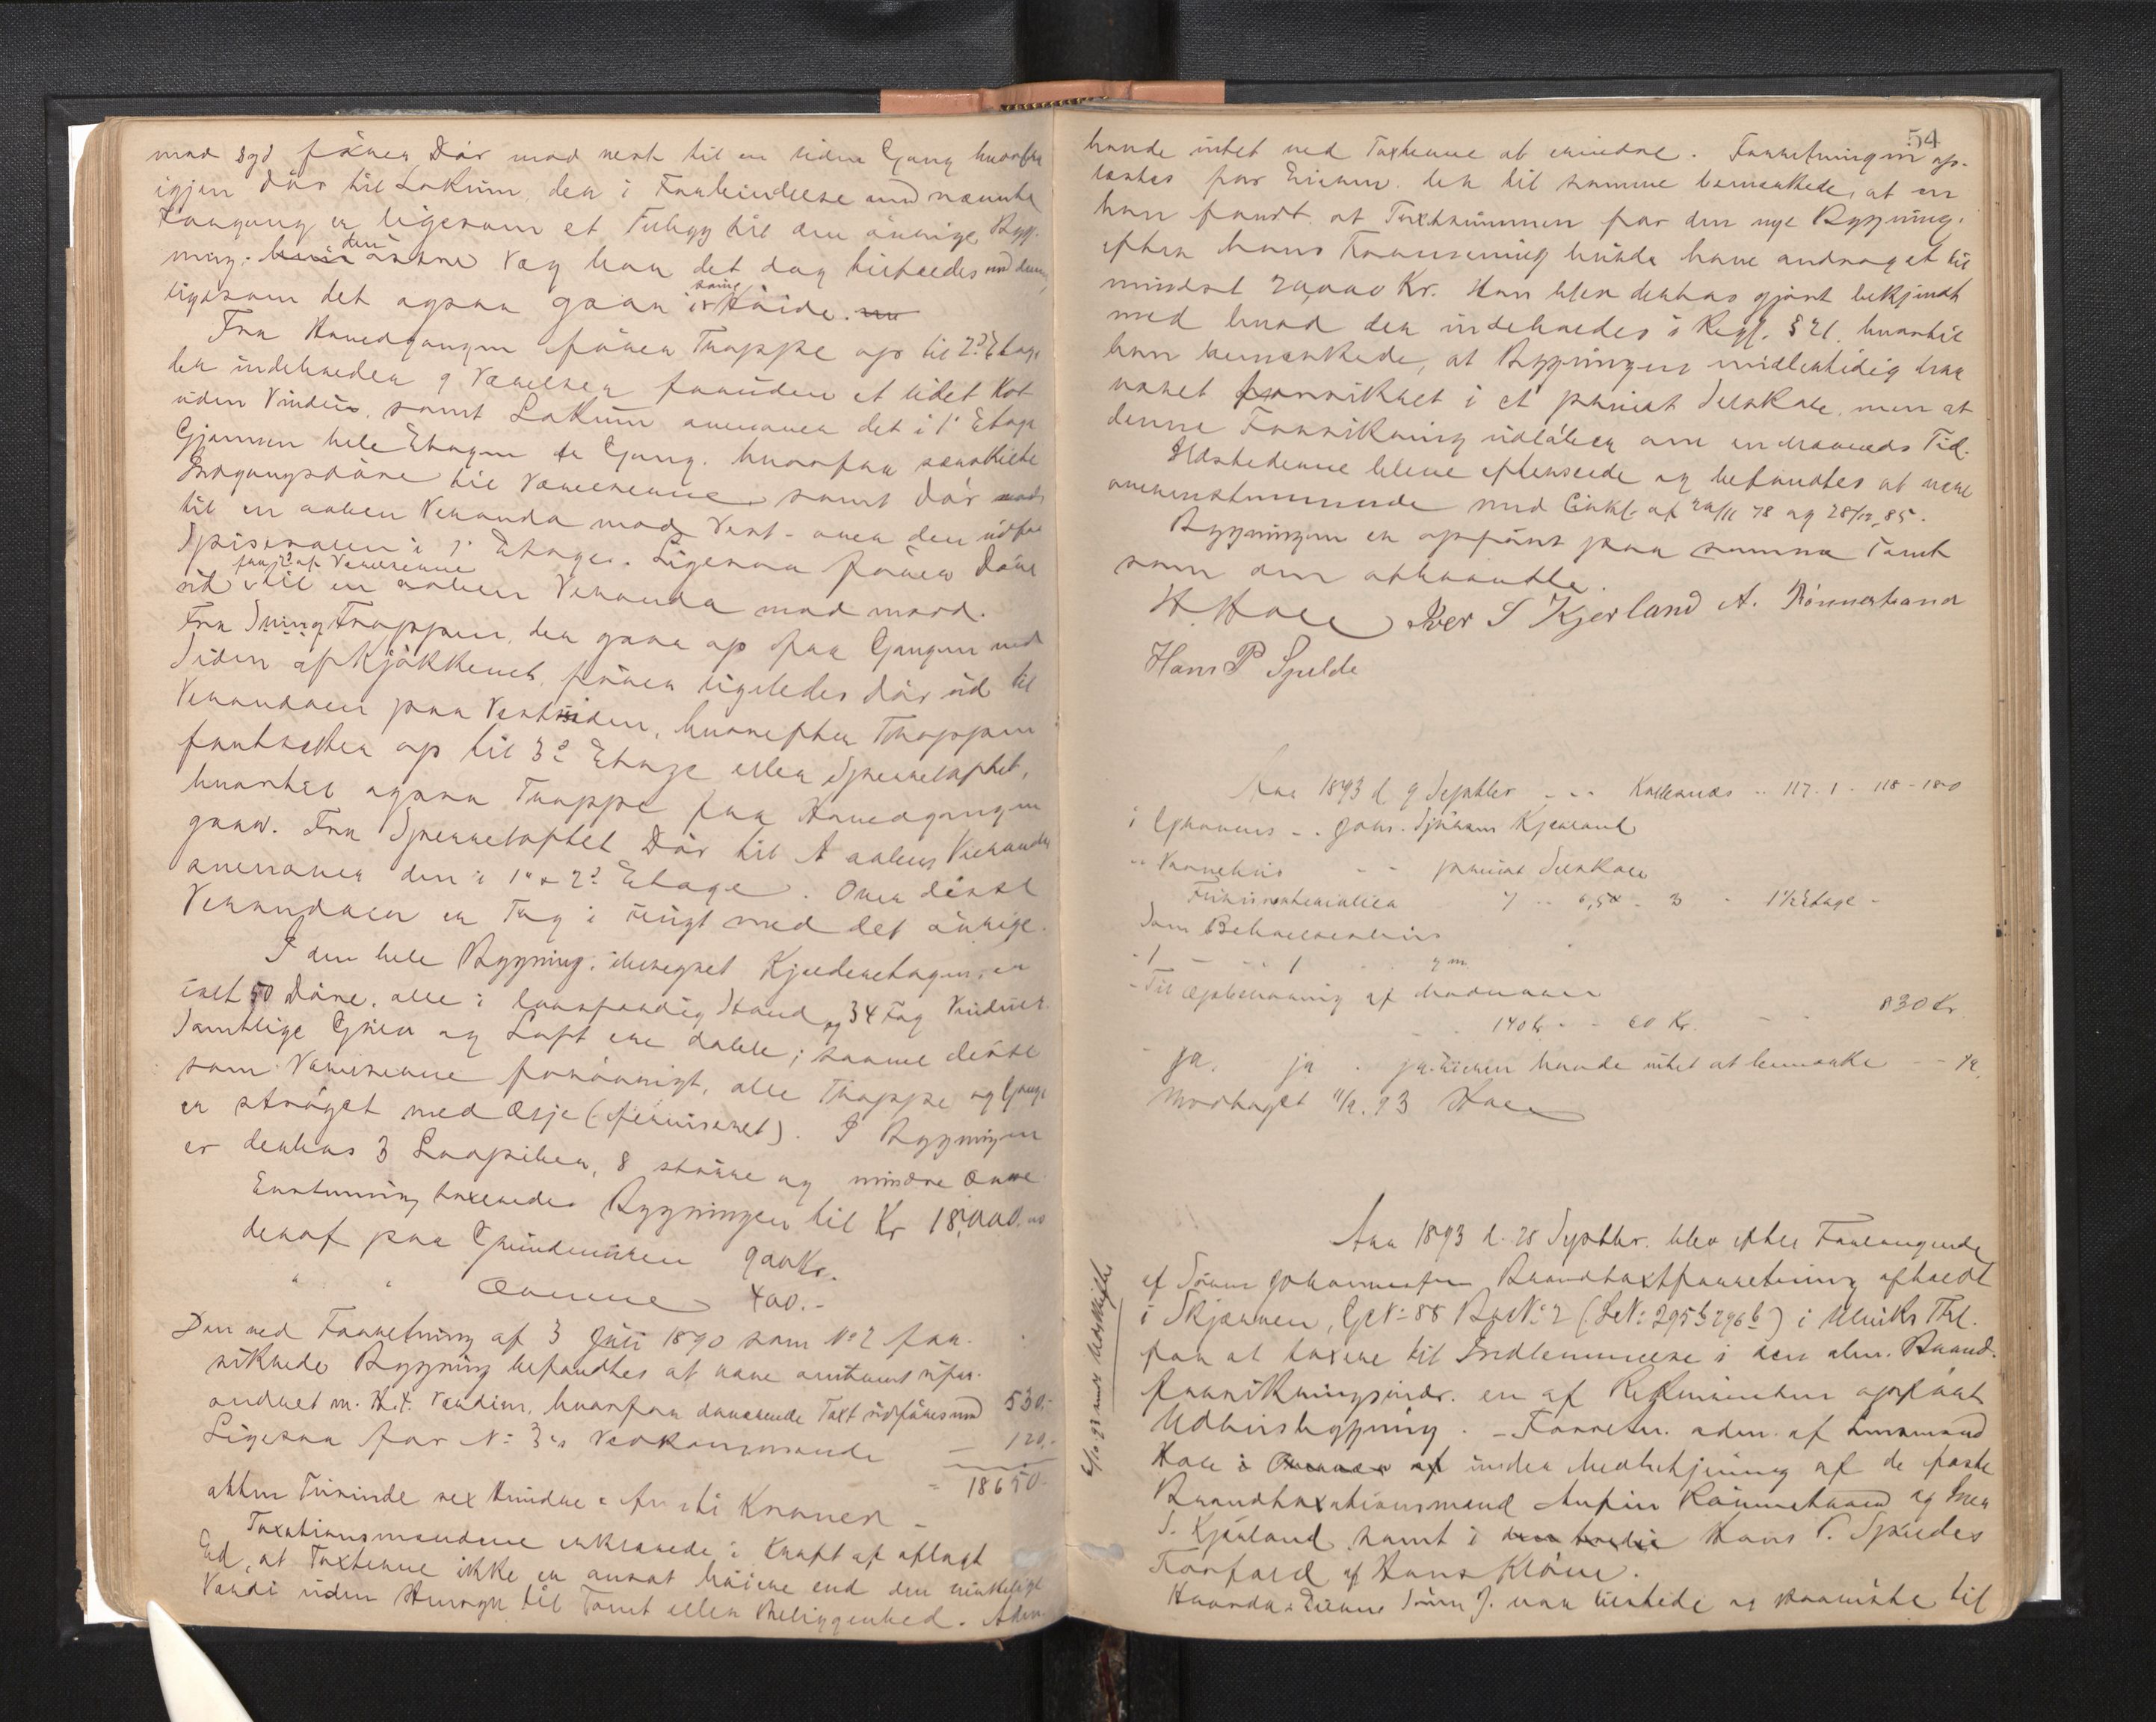 mod Syd fører Dør mod vest til en liden Gang hvorfra
igjen Dør til Lokum, der i Forbindelse med nævnte
Forgang er ligesom et Tilbygg til den øvrige Byg-
ning. den østre Væg har det dog tilfælles med denne,
ligesom det ogsaa gaar i samme Høide.
Fra Hovedgangen fører Trappe op til 2d Etage
der indeholder 9 Værelser foruden et lidet Kot
uden Vindue, samt Lokum ovenover det i 1' Etage
Gjennem hele Etagen er Gang, hvorfra særskilte
Indgangsdøre til Værelserne samt Dør
til en aaben Veranda mod Vest - over den udfor
Spisesalen i 1' Etage. Ligesaa fører Døre
ud fra 2 af Værelserne til en aaben Veranda mod nord.
Fra Svingtrappen, der gaar op fra Gangen ved
Siden af Kjøkkenet, fører ligeledes Dør ud til
Verandaen paa Vestsiden, hvorefter Trappen
fortsætter op til 3d Etage eller Sperreloftet,
hvortil ogsaa Trappe fra Hovedgangen
gaar. Fra Sperreloftet Dør til 1 aaben Veranda
ovenover den i 1' & 2d Etage. Over disse
Verandaer er Tag i flugt med det øvrige.
I den hele Bygning, iberegnet Kjelderetagen, er
ialt 50 Døre, alle i lovfærdig Stand og 34 Fag Vinduer.
Samtlige Gulv og Loft ere doble; saavel disse
som Værelserne forøvrigt, alle Trapper og Gange
er strøget med Olje (ferniseret). I Bygningen
er derhos 3 Lovpiber, 8 større og mindre Ovne
Enstemmig taxeredes Bygningen til Kr 18,000.00
deraf paa Grundmuren 900 Kr.
" " Ovnene 400.-
Den ved Forretning af 3 Juli 1890 som No 2 for-
sikrede Bygning befandtes at være omtrent ufor-
andret m. H. t. Værdien, hvorfor daværende Taxt udføres med 530.-
Ligesaa for No 3's Vedkommende - 120.-
= 18650.-
atten Tusinde sex Hundre & femti Kroner -
Taxationsmændene erklærede i Kraft af aflagt
Ed, at Taxterne ikke er ansat høiere end den virkelige
Værdi uden Hensyn til Tomt eller Beliggenhed. Adm.
54
havde intet ved Taxterne at erindre. Forretningen op-
læstes for Eieren der til samme bemærkede, at
han fandt, at Taxtsummen for den nye Bygning,
efter hans Formening burde have andraget til
mindst 20,000 Kr. Han blev derhos gjort bekjendt
med hvad der indeholdes i Regl. § 21, hvortil
han bemærkede, at Bygningen midlertidig har
været forsikret i et privat Selskab, men at
denne Forsikring udløber om en Maaneds Tid.
Ildstederne bleve efterseede og befandtes at være
overensstemmende med Cirkl. af 78 og 28/12 85.
Bygningen er opført paa samme Tomt
som den afbrændte.
H. Hoel Iver S Kjerland A. Rønnestrand
Hans P Spilde
Aar 1893 d 9 Septbr - - - 117. 1 - 118 - 180
i Granvins - - Johs. Kjerland
- Vaanehus - - privat Selskab
7 - 6,50 - 3 - 1 1/2 Etage -
Som Beboelseshus
- 1 - - 1 - - 9 m
- Til Opbevaring af Madvarer
140 kr - - 60 Kr. - - 830 Kr.
- ja. - ja - ja. Eieren havde intet at bemærke - - ja.
Modtaget 11/9. 93 Hoel
Aar 1893 d. 28 Septbr. blev efter Forlangende
af Søren Johannessen Brandtaxtforretning afholdt
i Skjerven, GNo 88 BrNo 2 (LNo 295b 296b) i Ulviks Thl.
for at taxere til Indlemmelse i den alm. Brand-
forsikringsindr. en af Rekvirenten opført
Udhusbygning. - Forretn. adm. af Lensmand
Hoel under Medbetjening af de faste
Brandtaxationsmænd Anfin Rønnestrand og Iver
S. Kjerland samt i Hans P. Spildes
Forfald af Hans Kløve.
Huseier Søren J. var tilstede og paaviste til
6/10 93 sendt Udskrift